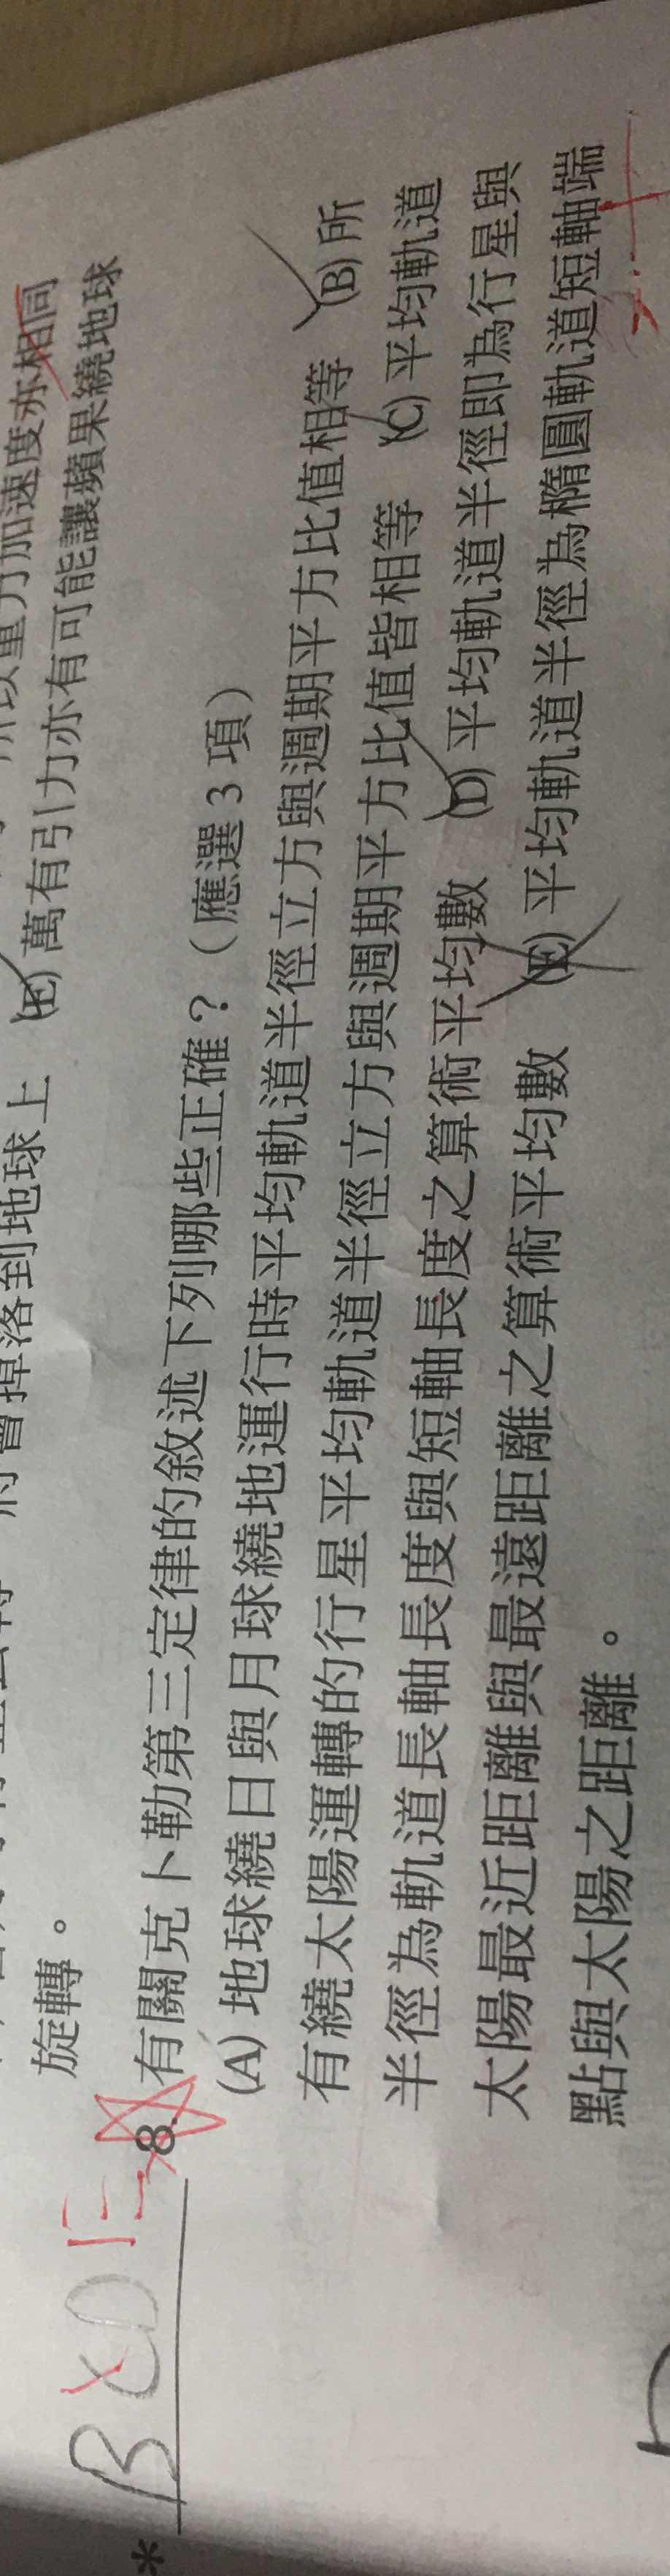 加速度亦相同
地球上 (E) 萬有引力亦有可能讓蘋果繞地球
旋轉。
* BCD E 8. 有關克卜勒第三定律的敘述下列哪些正確？（應選 3 項）
(A) 地球繞日與月球繞地運行時平均軌道半徑立方與週期平方比值相等 (B) 所
有繞太陽運轉的行星平均軌道半徑立方與週期平方比值皆相等 (C) 平均軌道
半徑為軌道長軸長度與短軸長度之算術平均數 (D) 平均軌道半徑即為行星與
太陽最近距離與最遠距離之算術平均數 (E) 平均軌道半徑為橢圓軌道短軸端
點與太陽之距離。